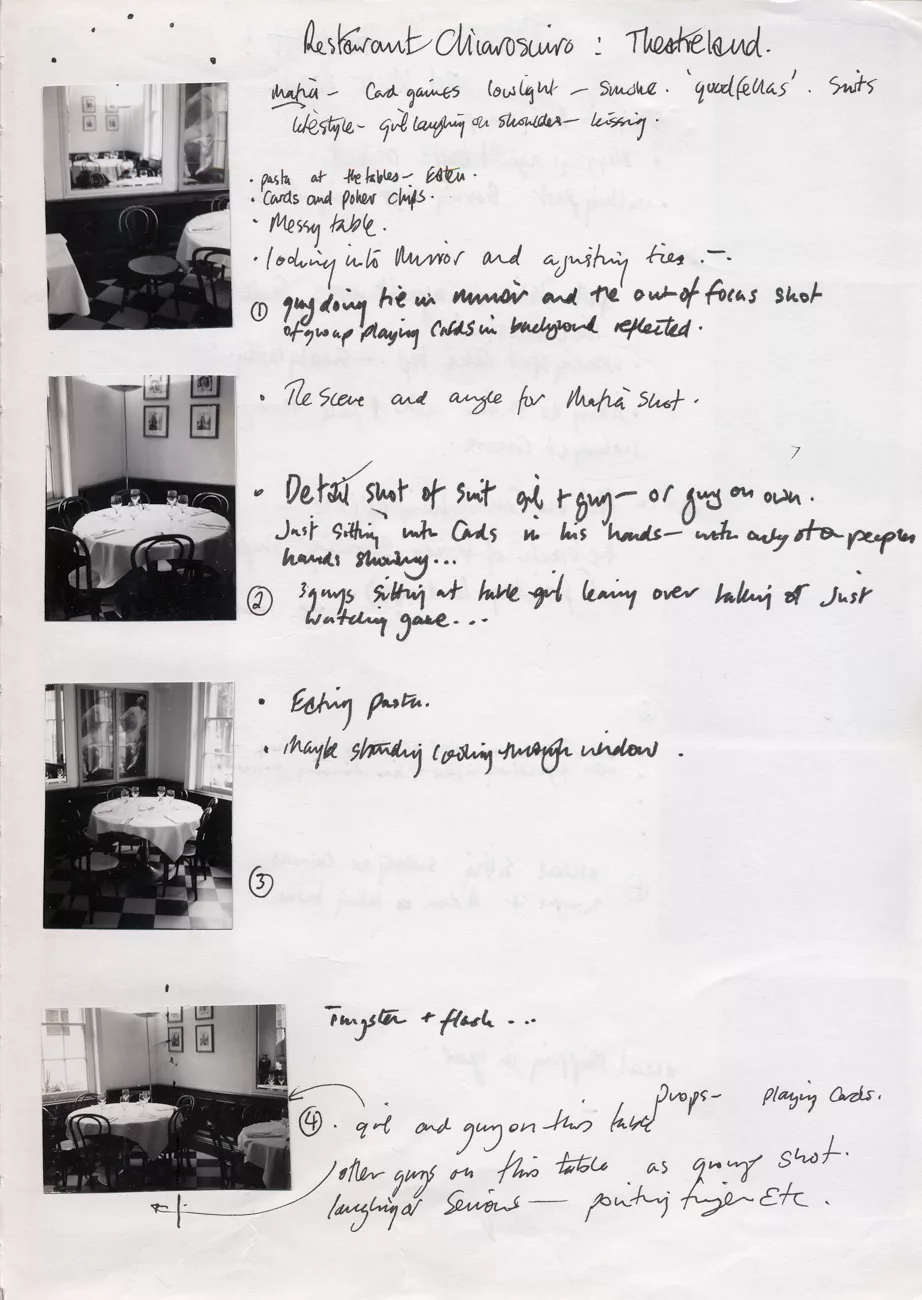 Restaurant Chiaroscuro : Theatreland.
Mafia – Card games lowlight – Smoke. 'goodfellas'. Suits
lifestyle – girl laughing on shoulder – kissing.
• pasta at the tables – Eaten.
• Cards and poker chips.
• Messy table.
• looking into Mirror and ajusting ties. –.
① guy doing tie in mirror and the out of focus shot
of group playing Cards in background reflected.
• The Scene and angle for Mafia Shot.
• Detail shot of Suit girl + guy – or guy on own.
Just Sitting with Cards in his hands – with only other peoples
hands showing...
② 3 guys sitting at table girl leaning over talking or Just
watching game...
• Eating pasta.
• Maybe standing looking through window.
③
+ flash ...
Props – playing Cards.
④ • girl and guy on this table
other guys on this table as group shot.
laughing or Serious – pointing finger Etc.